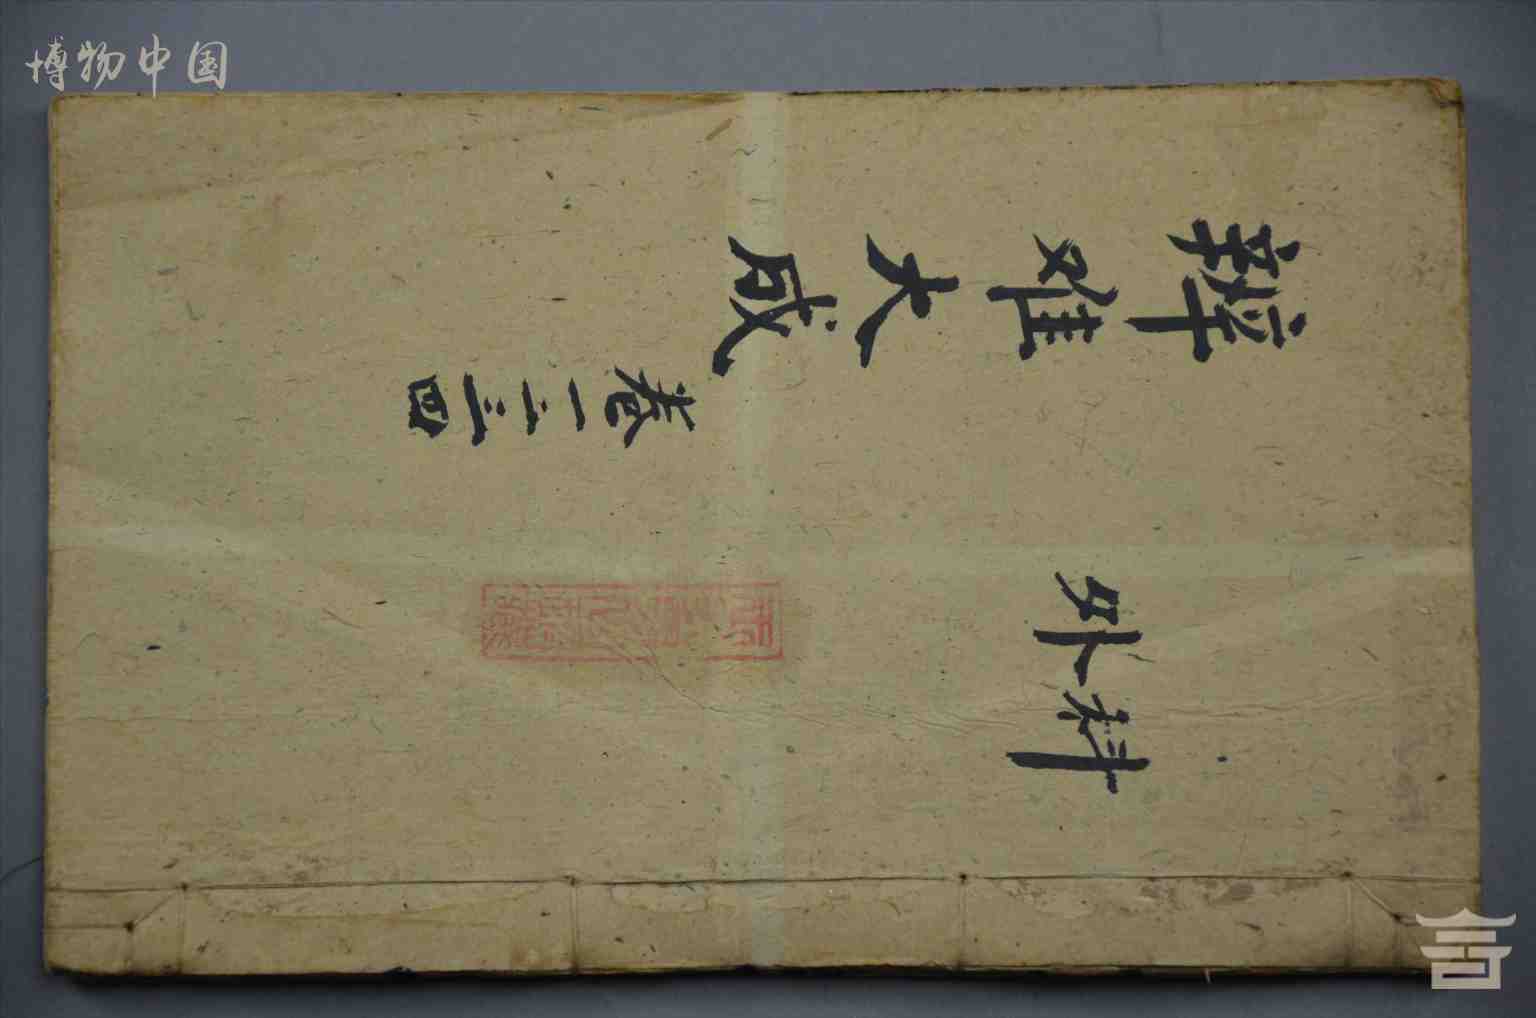 博物中国
外科
辨难大成
卷一二三四